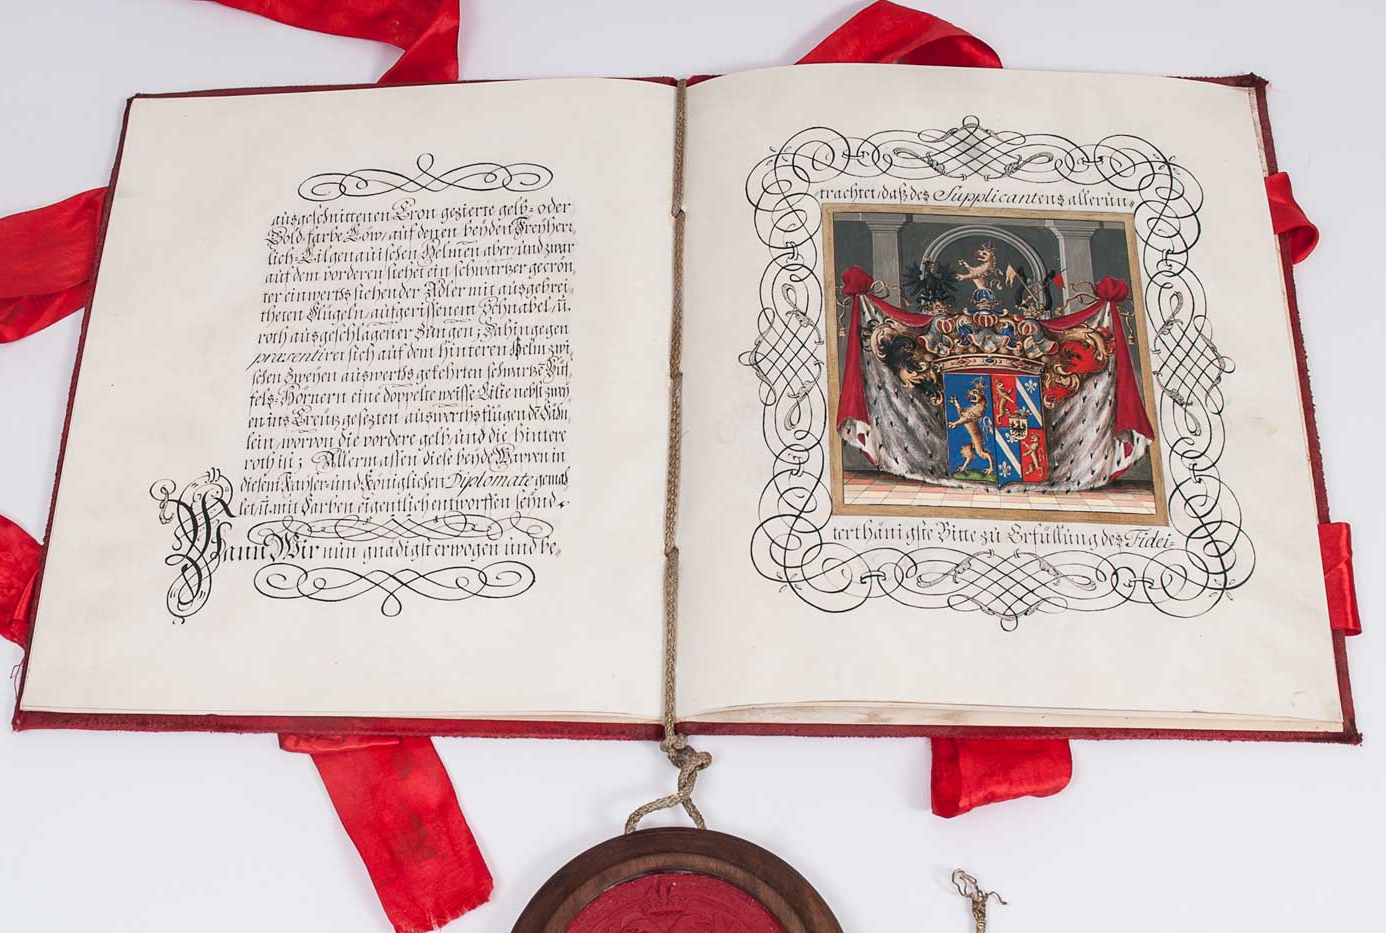 ausgeschnittenen Cron gezierte gelb- oder
Gold-farbe Löw, auf denen beyden Freyherr-
lich-Lilgenauischen Helmen aber und zwar
auf dem vorderen stehet ein schwartzer gecrön-
ter einwerths sehender Adler mit ausgebrei-
theten Flügeln, aufgerissenem Schnabel, u.
roth ausgeschlagener Zungen; Dahingegen
præsentiret sich auf dem hinteren Helm zwi-
schen zweyen auswerths gekehrten schwartze Büf-
fels-Hörnern eine doppelte weisse Lilie nebst zwey
en ins Creütz gesezten auswerths fliegende Fähn-
lein, worvon die vordere gelb und die hintere
roth ist; Allermassen diese beyde Wappen in
diesem Kayser- und Königlichen Diplomate gemah-
let, u. mit Farben eigentlich entworffen seynd.
Wann Wir nun gnädigst erwogen und be-
trachtet, daß des Supplicantens allerun-
terthänigste Bitte zu Erfüllung des Fidei-